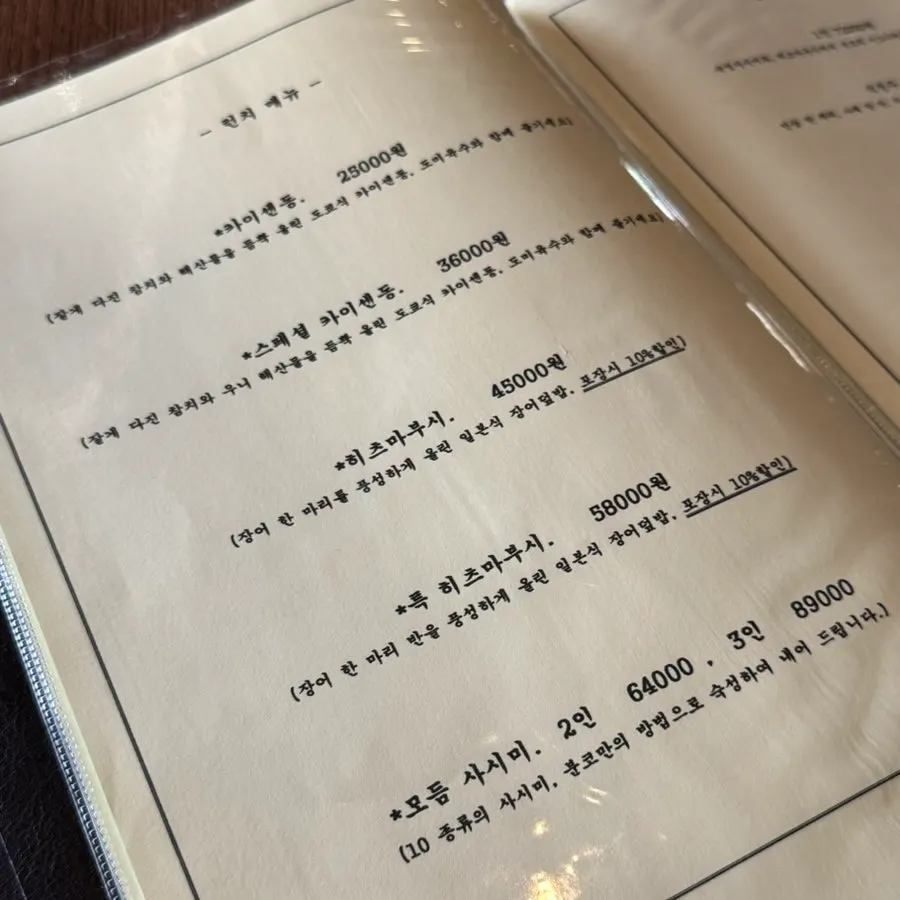 -런치 메뉴 -
*카이센동. 25000원
(잘게 다진 참치와 해산물을 듬뿍 올린 도쿄식 카이센동, 도미육수와 함께 즐기세요)
*스페셜 카이센동. 36000원
(잘게 다진 참치와 우니 해산물을 듬뿍 올린 도쿄식 카이센동, 도미육수와 함께 즐기세요)
*히츠마부시. 45000원
(장어 한 마리를 풍성하게 올린 일본식 장어덮밥, 포장시 10%할인)
*특 히츠마부시. 58000원
(장어 한 마리 반을 풍성하게 올린 일본식 장어덮밥, 포장시 10%할인)
*모듬 사시미. 2인 64000 , 3인 89000
(10 종류의 사시미, 분코만의 방법으로 숙성하여 내어 드립니다.)